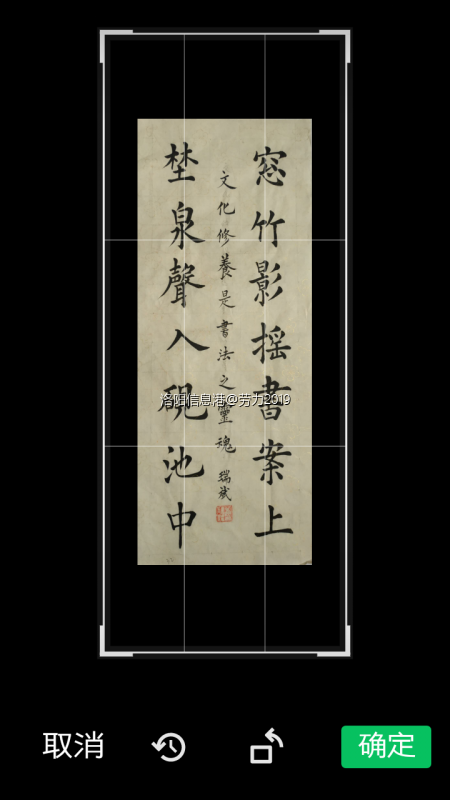 窓竹影摇書案上
文化修養是書法之靈魂 瑞斌
埜泉聲入硯池中
洛阳信息港@劳力2919
取消
确定